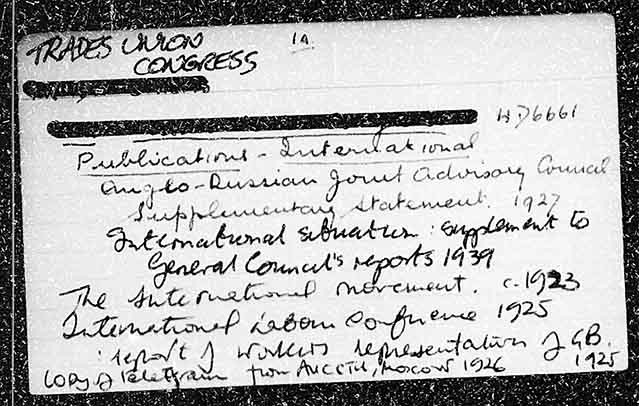 TRADES UNION
CONGRESS
1A
HD6661
Publications - International
Anglo-Russian Joint Advisory Council
Supplementary Statement. 1927
International situation: supplement to
General Council's reports 1939
The International movement. c.1923
International Labour Conference 1925
: report of workers representation of GB. 1925
Copy of Telegram from AUCCTU, Moscow 1926